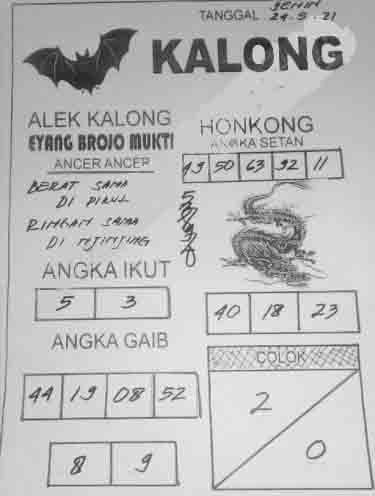 SENIN
TANGGAL : 24.5.21
KALONG
ALEK KALONG
EYANG BROJO MUKTI
ANCER ANCER
BERAT SAMA
DI PIKUL
RINGAN SAMA
DI NJINJING
ANGKA IKUT
5 3
ANGKA GAIB
44 19 08 52
8 9
HONKONG
ANGKA SETAN
49 50 63 92 11
40 18 23
COLOK
2
0